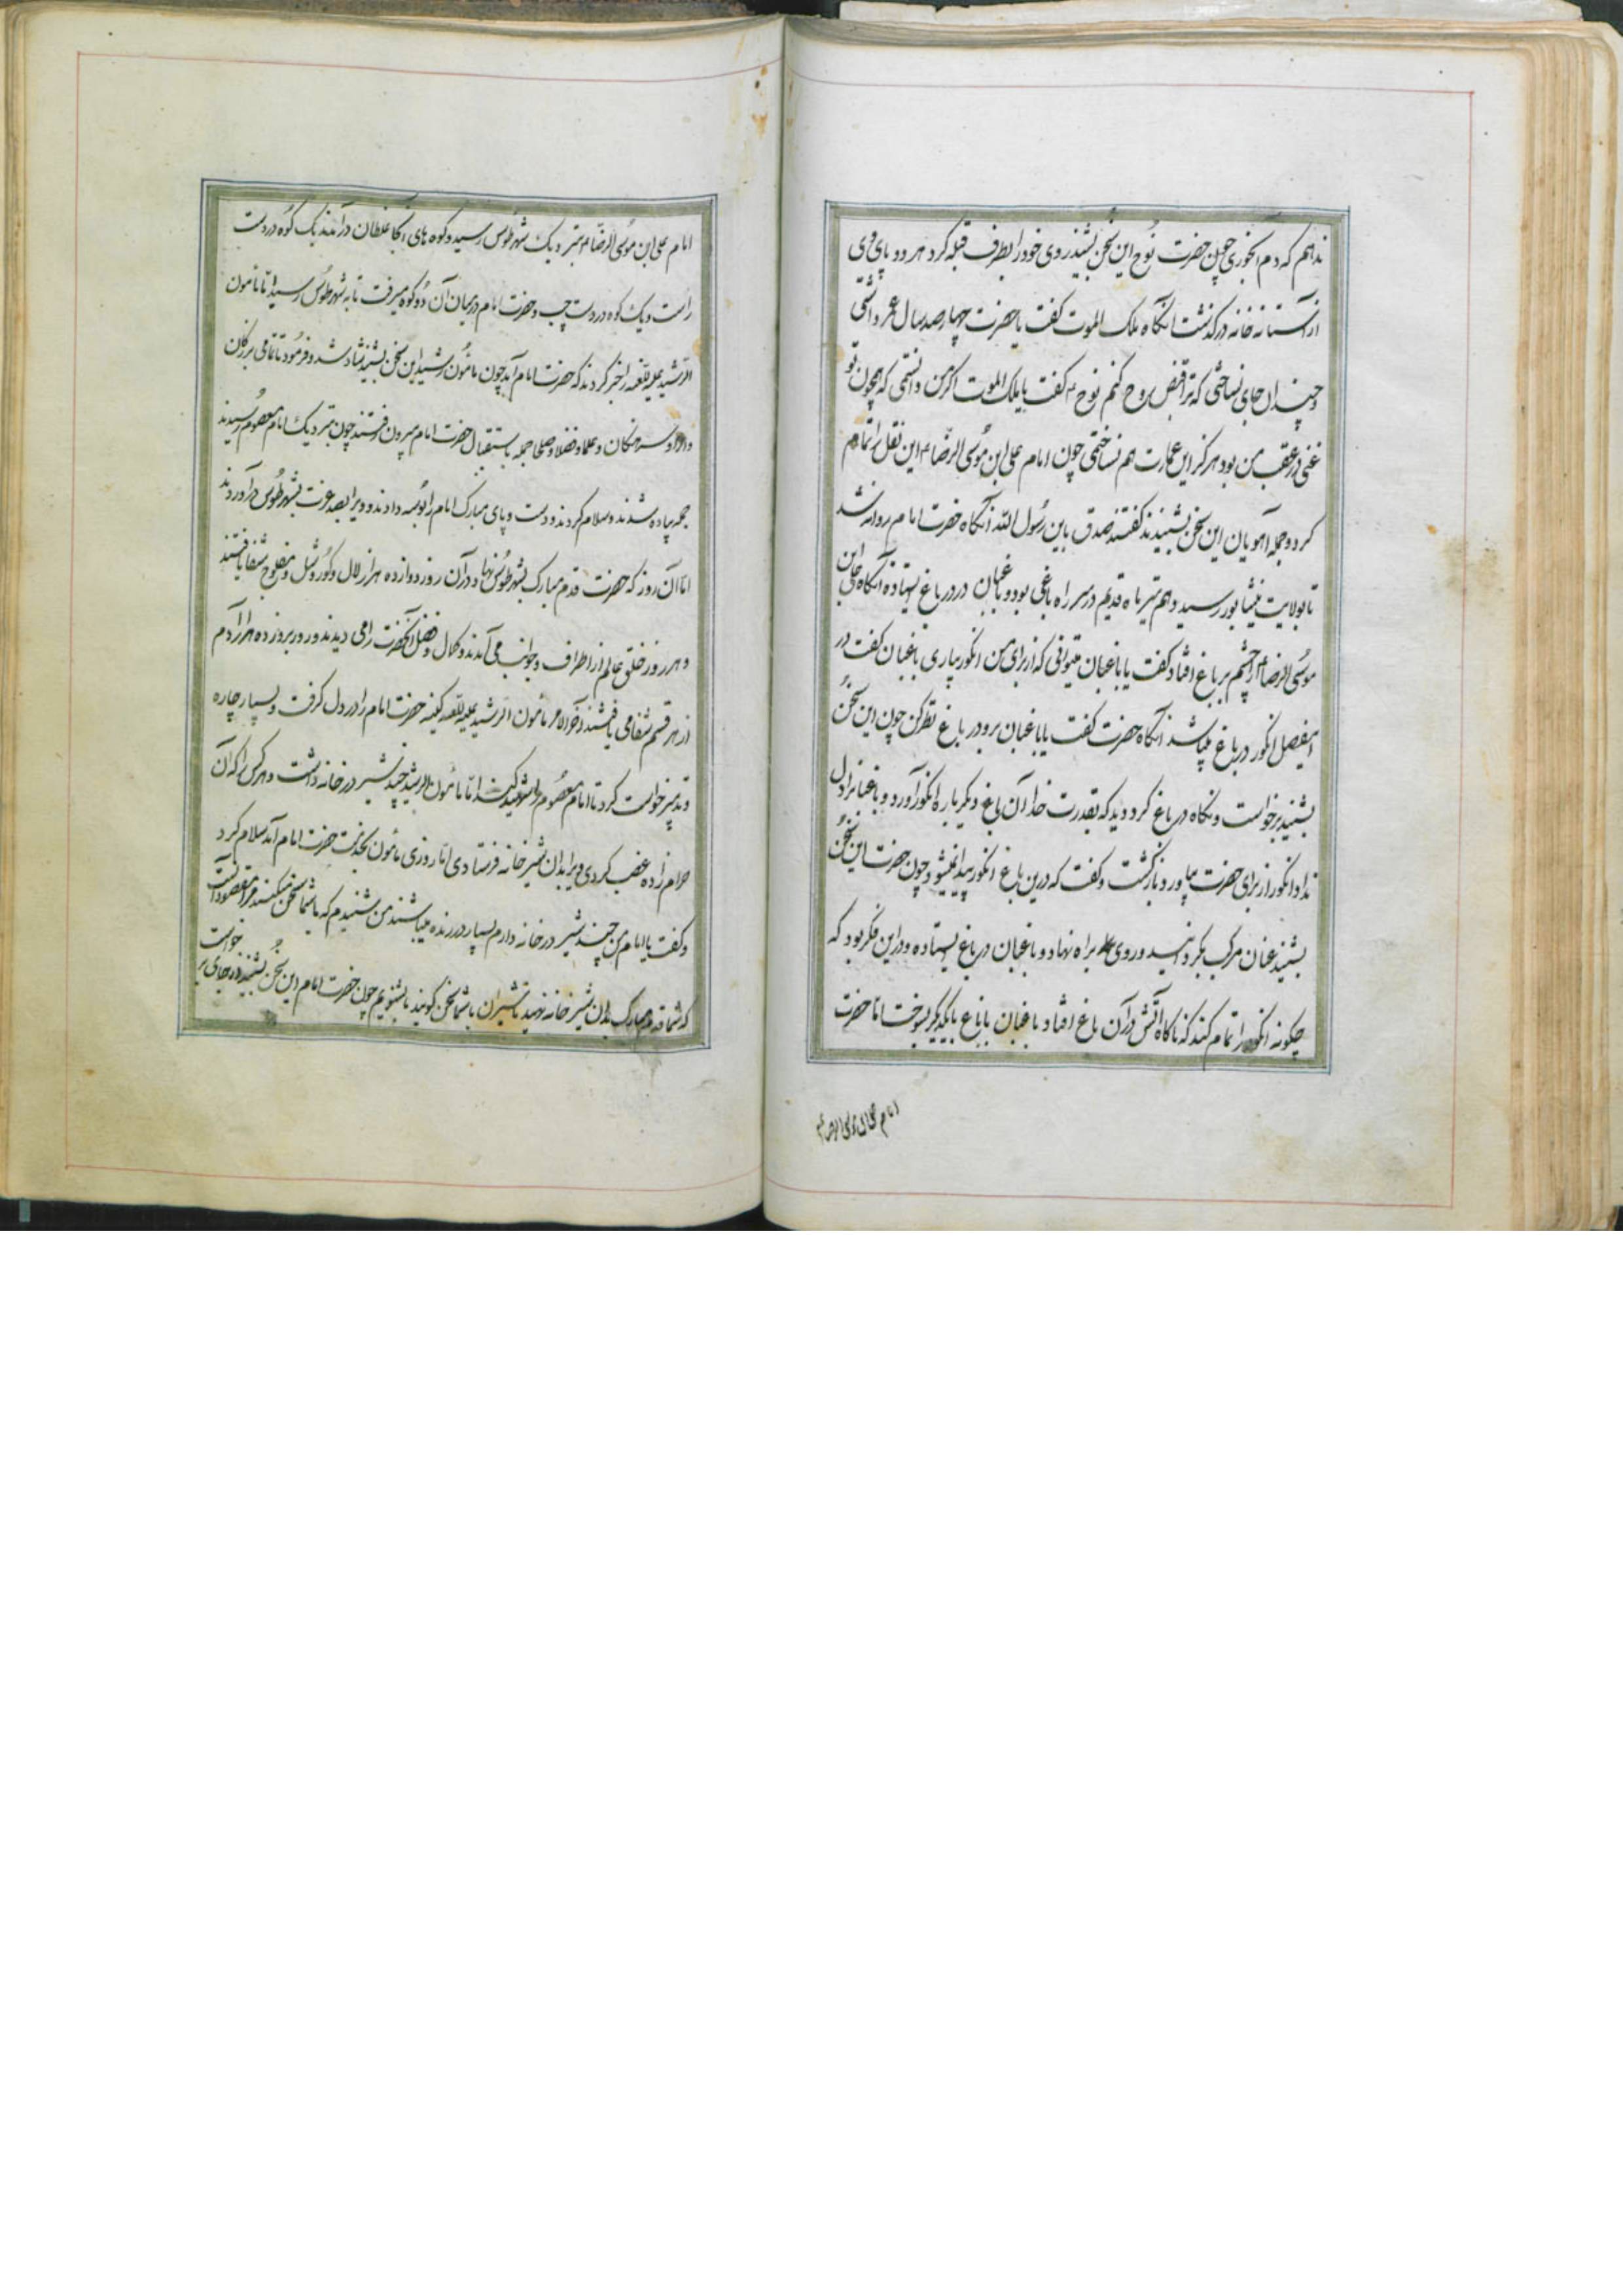 نداهم که دم آبخوری چون حضرت نوح این سخن بشنید روی خود را بطرف قبله کرد هر دو پای وی
از آستانه خانه درگذشت آنگاه ملک الموت گفت یا حضرت چهارصد سال عمر داشتی
و چندان جای نساختی که ترا قبض روح کنم نوح ع گفت یا ملک الموت اگر من دانستمی که همچون تو
غنی در عقب من بود هرگز این عمارت هم نساختمی چون امام علی ابن موسی الرضا ع این نقل را تمام
کرد و جمله آهویان این سخن بشنیدند گفتند صدق یابن رسول الله آنگاه حضرت امام روانه شد
تا بولایت نیشابور رسید و هم تیر ماه قدیم در سر راه باغی بود و باغبان در در باغ ایستاده آنگاه علی ابن
موسی الرضا را چشم بر باغ افتاد گفت یا باغبان میتوانی که از برای من انگور بیاری باغبان گفت در
اینفصل انگور در باغ نباشد آنگاه حضرت گفت یا باغبان برو در باغ نظر کن چون این سخن
بشنید برخواست و نگاه در باغ کرد دید که بقدرت خدا آن باغ دیگر باره انگور آورد و باغبانرا دل
نداد انگور از برای حضرت بیاورد بازگشت و گفت که درین باغ انگور پیدا نمیشود چون حضرت این سخن
بشنید عنان مرکب بگردانید و روی براه نهاد و باغبان در باغ ایستاده و در این فکر بود که
چگونه انگور را تمام کند که ناگاه آتش در آن باغ افتاد باغبان با باغ بایکدیگر بسوخت اما حضرت
امام علی ابن موسی الرضا ع
امام علی ابن موسی الرضا ع بنزدیک شهر طوس رسید و کوه های آنجا غلطان در آمدند یک کوه در دست
راست و یک کوه در دست چپ و حضرت امام در میان آن دو کوه میرفت تا به شهر طوس رسید اما مأمون
الرشید علیه اللعنه را خبر کردند که حضرت امام آمد چون مأمون رشید این سخن بشنید شاد شد و فرمود تا تمامی بزرگان
و سرهنگان و علما و فضلا و صلحا جمله باستقبال حضرت امام بیرون رفتند چون بنزدیک امام معصوم رسیدند
جمله پیاده شدند و سلام کردند و دست و پای مبارک امام را بوسه دادند و ویرا بصد عزت بشهر طوس در آوردند
اما آن روز که حضرت قدم مبارک بشهر طوس نهاد در آن روز دوازده هزار لال و کور و شل و مفلوج شفا یافتند
و هر روز خلق عالم از اطراف و جوانب می آمدند و کمال و فضل آنحضرت را می دیدند و روز بروز ده هزار آدم
از هر قسم شفا می یافتند آخر الامر مأمون الرشید علیه اللعنه کینه حضرت امام را در دل گرفت و بسیار چاره
و تدبیر خواست کرد تا امام معصوم را شهید کند اما مأمون الرشید چند شیر در خانه داشت و هر کس را که آن
حرام زاده غضب کردی ویرا بدان شیر خانه فرستادی اما روزی مأمون بخدمت حضرت امام آمد سلام کرد
و گفت یا امام من چند شیر در خانه دارم بسیار درنده میباشند من شنیدم که با شما سخن میکنند مرا مقصود آنست
که شما قدم مبارک بدان شیر خانه نهید تا شیران با شما سخن گویند ما بشنویم چون حضرت امام این سخن بشنید از جای بر
خواست